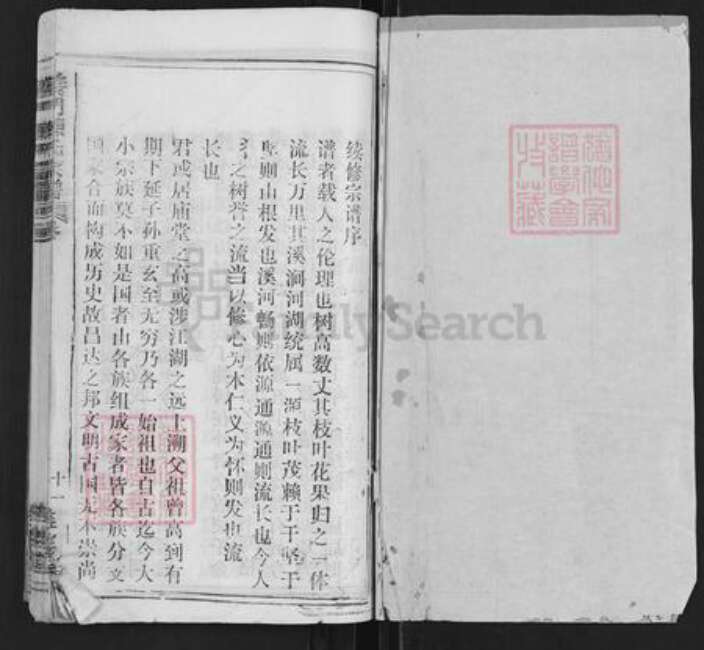 续修宗谱序
谱者载人之伦理也树高数丈其枝叶花果归之一体
流长万里其溪涧河湖统属一源枝叶茂赖于干坚干
坚则由根发也溪河畅则依源通源通则流长也今人
之树誉之流当以修心为本仁义为怀则发也流
长也
君或居庙堂之高或涉江湖之远上溯父祖曾高到有
期下延子孙重玄至无穷乃各一始祖也自古迄今大
小宗族莫不如是国者由各族组成家者皆各族分支
国家合而构成历史故昌达之邦文明古国无不崇尚
十一
谱学会
收藏
FamilySearch